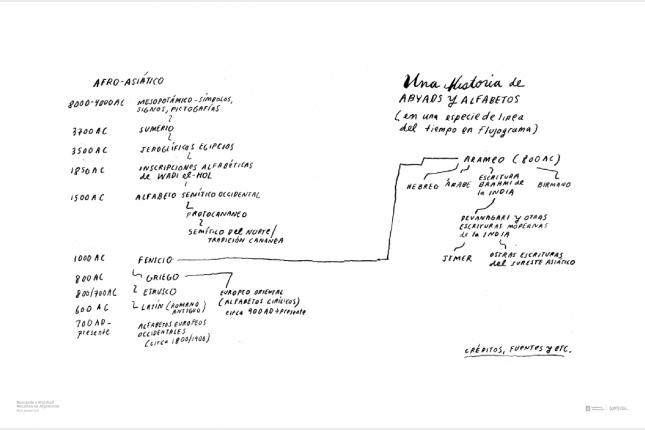 AFRO-ASIÁTICO
8000-4000 AC MESOPOTÁMICO-SÍMBOLOS,
SIGNOS, PICTOGRAFÍAS
3700 AC SUMERIO
3500 AC JEROGLÍFICOS EGIPCIOS
1850 AC INSCRIPCIONES ALFABÉTICAS
de WADI el-HOL
1500 AC ALFABETO SEMÍTICO OCCIDENTAL
PROTOCANANEO
SEMÍTICO DEL NORTE/
TRADICIÓN CANANEA
1000 AC FENICIO
800 AC GRIEGO
800/700 AC ETRUSCO
600 AC LATÍN (ROMANO
ANTIGUO)
700 AD-
presente
ALFABETOS EUROPEOS
OCCIDENTALES
(circa 1800/1900)
EUROPEO ORIENTAL
(ALFABETOS CIRÍLICOS)
circa 900 AD + presente
Una Historia de
ABYADS Y ALFABETOS
(en una especie de línea
del tiempo en flujograma)
ARAMEO (800 AC)
HEBREO
ÁRABE
ESCRITURA
BRAHMI de
la INDIA
BIRMANO
DEVANAGARI y OTRAS
ESCRITURAS MODERNAS
de la INDIA
JEMER
OTRAS ESCRITURAS
del SURESTE ASIÁTICO
CRÉDITOS, FUENTES y ETC.